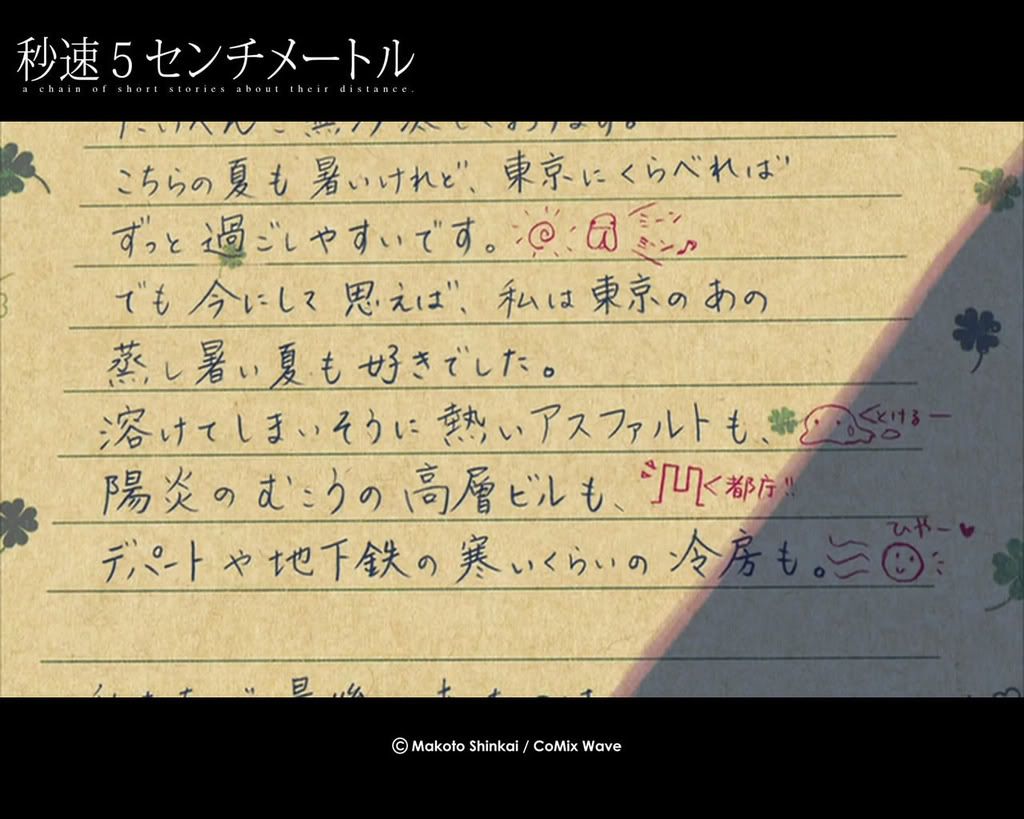 秒速5センチメートル
a chain of short stories about their distance.
こちらの夏も暑いけれど、東京にくらべれば
ずっと過ごしやすいです。 ミーン ミン♪
でも今にして思えば、私は東京のあの
蒸し暑い夏も好きでした。
溶けてしまいそうに熱いアスファルトも、 とけるー
陽炎のむこうの高層ビルも、 都庁!!
ひやー♥
デパートや地下鉄の寒いくらいの冷房も。
© Makoto Shinkai / CoMix Wave